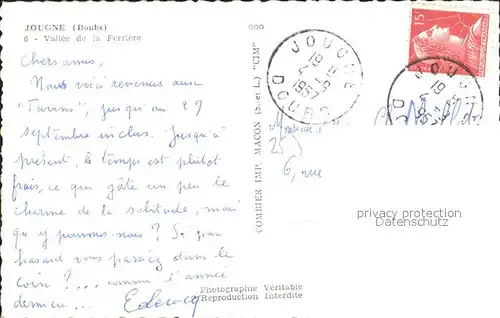 JOUGNE (Doubs)
6 - Vallée de la Ferrière
Chers amis,
Nous voici revenus aux
"Tavins", jusqu'au 29
septembre inclus. Jusqu'à
présent, le temps est plutôt
frais, ce qui gâte un peu le
charme de la solitude, mais
qu'y pouvons nous ? Si par
hasard vous passiez dans le
coin ?.... comme l'année
dernière...
COMBIER IMP. MACON (S.-et-L.) "CIM"
Photographie Véritable
Reproduction Interdite
JOUGNE
DOUBS
1957
15F
Monsieur
25
6, rue
privacy protection
Datenschutz